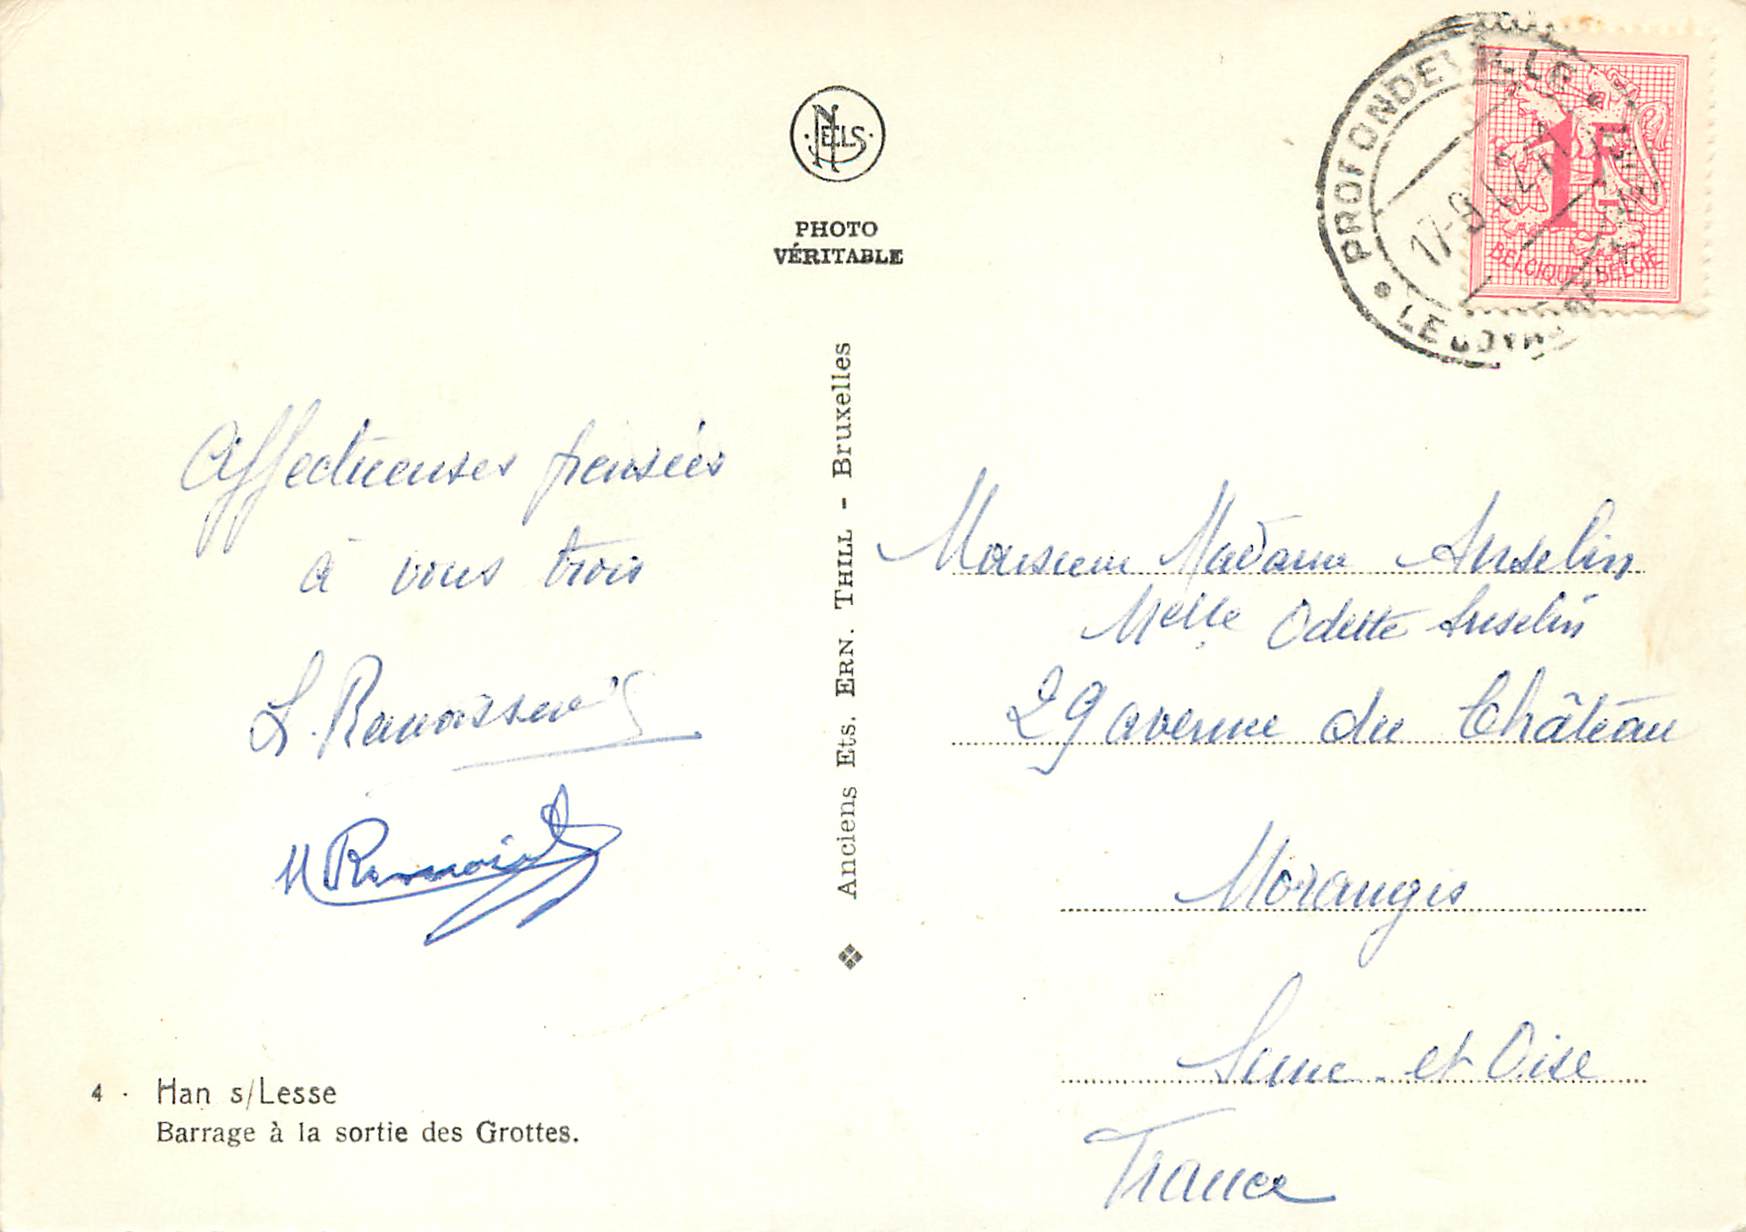 NELS
PHOTO
VÉRITABLE
PROFONDEVILLE
17-9
1F
BELGIQUE-BELGIE
Affectueuses pensées
à vous trois
Anciens Ets. ERN. THILL - Bruxelles
Monsieur Madame Anselin
Melle Odette Anselin
29 avenue du Château
Morangis
Seine et Oise
France
4 · Han s/Lesse
Barrage à la sortie des Grottes.